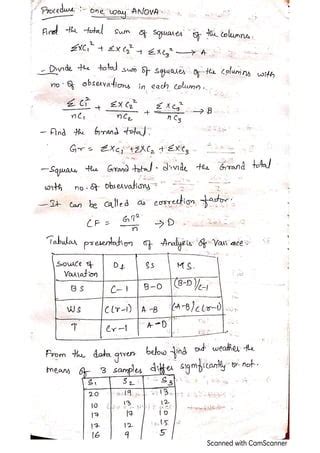 Procedure :- one way ANOVA
Find the total sum of squares of the columns.
ΣXC₁² + ΣXC₂² + ΣXC₃² → A
- Divide the total sum of squares of the columns with
no. of observations in each column.
ΣC₁²/nC₁ + ΣXC₂²/nC₂ + ΣXC₃²/nC₃ → B
- Find the Grand total.
Gr = ΣXC₁ + ΣXC₂ + ΣXC₃
- Square the Grand total. divide the Grand total
with no. of observations
- It can be called as correction factor.
CF = G₁²/n → D
Tabular presentation of Analysis of Variance
Source of Variation D.f SS M.S.
BS C-1 B-D (B-D)/C-1
WS C(r-1) A-B (A-B)/C(r-1)
T Cr-1 A-D
From the data given below find out weather the
means of 3 samples differ significantly or not.
S₁ S₂ S₃
20 19 13
10 13 12
17 17 10
17 12 15
16 9 5
Scanned with CamScanner